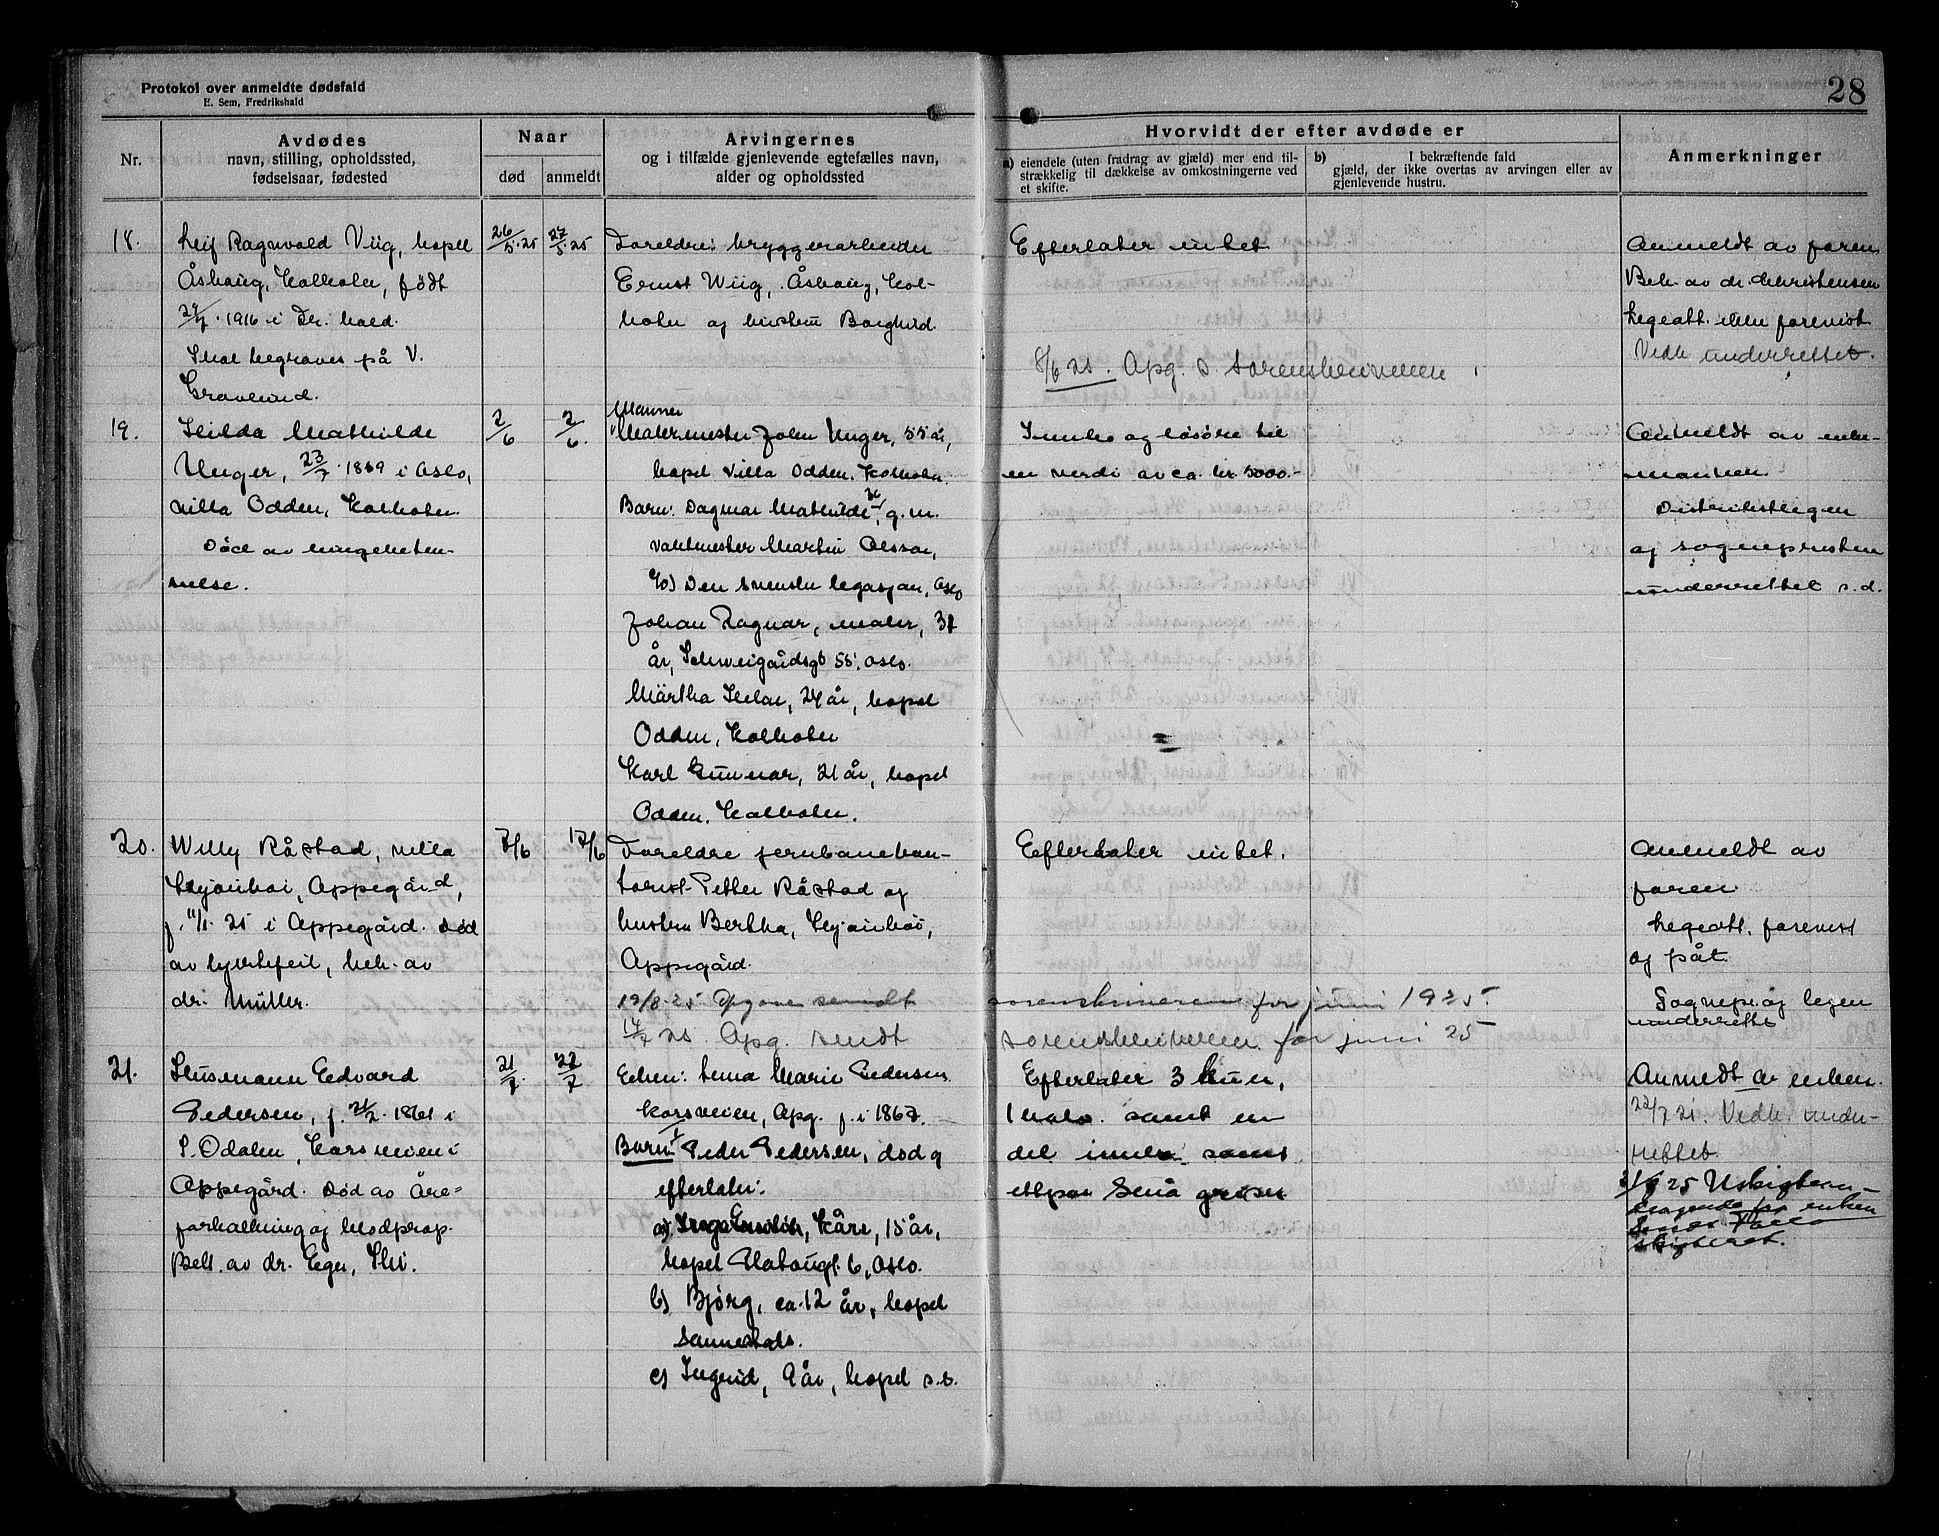 28
Protokol over anmeldte dødsfald
E. Sem, Fredrikshald
Nr.
Avdødes
navn, stilling, opholdssted,
fødselsaar, fødested
Naar
død
anmeldt
Arvingernes
og i tilfælde gjenlevende egtefælles navn,
alder og opholdssted
Hvorvidt der efter avdøde er
a) eiendele (uten fradrag av gjæld) mer end til-
strækkelig til dækkelse av omkostningerne ved
et skifte.
b) I bekræftende fald
gjæld, der ikke overtas av arvingen eller av
gjenlevende hustru.
Anmerkninger
18.
Leif Ragnvald Viig, bopel
Åshaug, Kolbotn, født
1916 i Dr. hald.
Skal begraves på V.
Gravlund.
26/5.25
27/5.25
Foreldre: bryggeriarbeider
Ernst Wiig, Åshaug, Kol-
botn og hustru Borghild.
Efterlater intet
8/6 25. Apg. s. sorenskriveren
Anmeldt av faren
Beh. av dr. Christensen
Legeatt. ikke forevist.
Vedk. underrettet.
19.
Hilda Mathilde
Unger, 23/7. 1869 i Oslo,
villa Odden, Kolbotn.
Død av
nelse.
2/6
2/6.
Mannen
Malermester John Unger, 55 år,
bopel Villa Odden, Kolbotn.
Barn: Dagmar Mathilde, g.m.
vaktmester Martin Olsson,
c/o) Den svenske legasjon, Oslo
Johan Ragnar, maler, 31
år, Schweigårdsgt 55, Oslo.
Märtha Hilda, 24 år, bopel
Odden, Kolbotn
Karl Gunnar, 21 år, bopel
Odden, Kolbotn.
Innbo og løsøre til
en verdi av ca. kr 5000.-
Anmeldt av enke-
mannen
Distriktslegen
og sognepresten
underrettet s.d.
20.
Willy Råstad, villa
Appegård,
f. 11/1. 25 i Appegård. Død
av hjertefeil, beh. av
dr. Müller.
7/6
12/6
Foreldre jernbanekon-
torist Petter Råstad og
hustru Bertha,
Appegård.
12/8.25 Opgave sendt sorenskriveren for juni 1925.
14/7 25. Apg. sendt sorenskriveren for juni 25
Efterlater intet.
Anmeldt av
faren
Legeatt. forevist
og påt.
Sognepr. og legen
underrettet
21.
Husmann Edvard
Pedersen, f. 21/2. 1861 i
S. Odalen, Korsveien i
Appegård. Død av Åre-
forkalkning og blodprop.
Beh. av dr. Eger, Ski.
21/7.
22/7
Enken: Lina Marie Pedersen
Korsveien, Apg. f. i 1867.
Barn: Peder Pedersen, død og
efterlater:
a) Kåre, 15 år,
bopel 6, Oslo.
b) Bjørg, ca. 12 år, bopel
sammesteds.
c) Ingrid, 9 år, bopel s.s.
Efterlater 3 kuer,
1 kalv. samt en
del innbo samt
et par små griser
Anmeldt av enken.
22/7 25. Vedk. under-
rettet.
25 Uskiftet
for enken